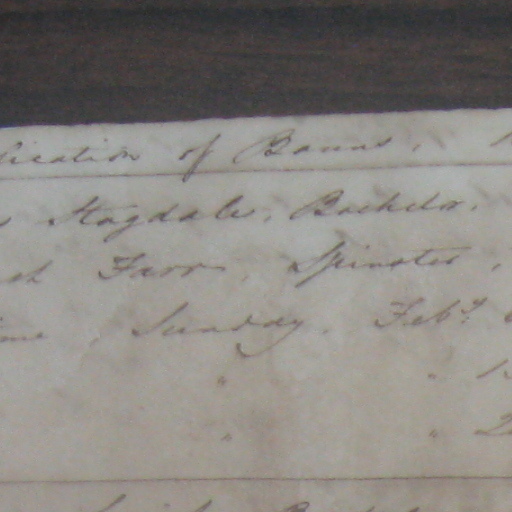 lication of Banns,
s Stagdale, Bachelor,
ah Farr, Spinster,
ime Sunday, Feb.y
" " 1
" " 2